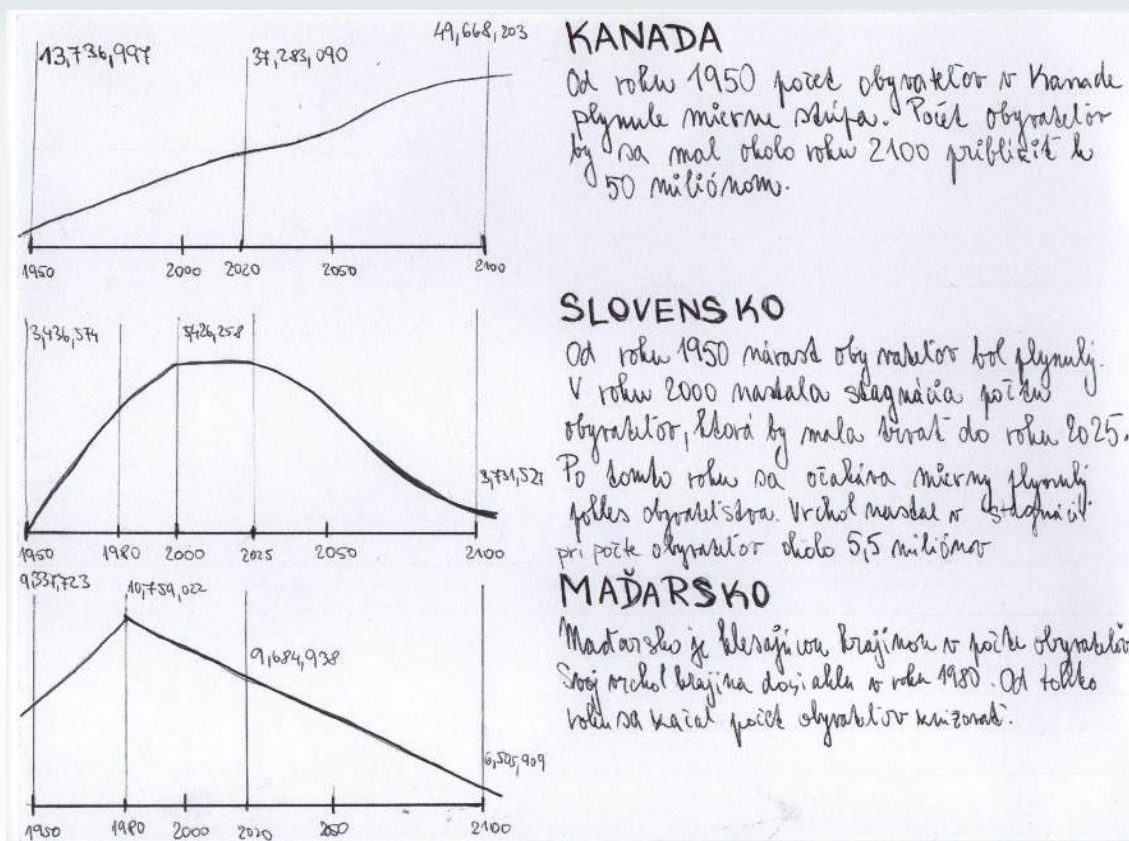 13,736,997
37,283,090
49,668,203
1950 2000 2020 2050 2100
KANADA
Od roku 1950 počet obyvateľov v Kanade
plynule mierne stúpa. Počet obyvateľov
by sa mal okolo roku 2100 priblížiť k
50 miliónom.
3,436,574
5,426,258
3,731,527
1950 1980 2000 2025 2050 2100
SLOVENSKO
Od roku 1950 nárast obyvateľov bol plynulý.
V roku 2000 nastala stagnácia počtu
obyvateľov, ktorá by mala trvať do roku 2025.
Po tomto roku sa očakáva mierny plynulý
pokles obyvateľstva. Vrchol nastal v stagnácií
pri počte obyvateľov okolo 5,5 miliónov
10,759,022
9,684,938
6,505,909
1950 1980 2000 2020 2050 2100
MAĎARSKO
Maďarsko je klesajúcou krajinou v počte obyvateľov
Svoj vrchol krajina dosiahla v roku 1980. Od tohto
roku sa začal počet obyvateľov znižovať.